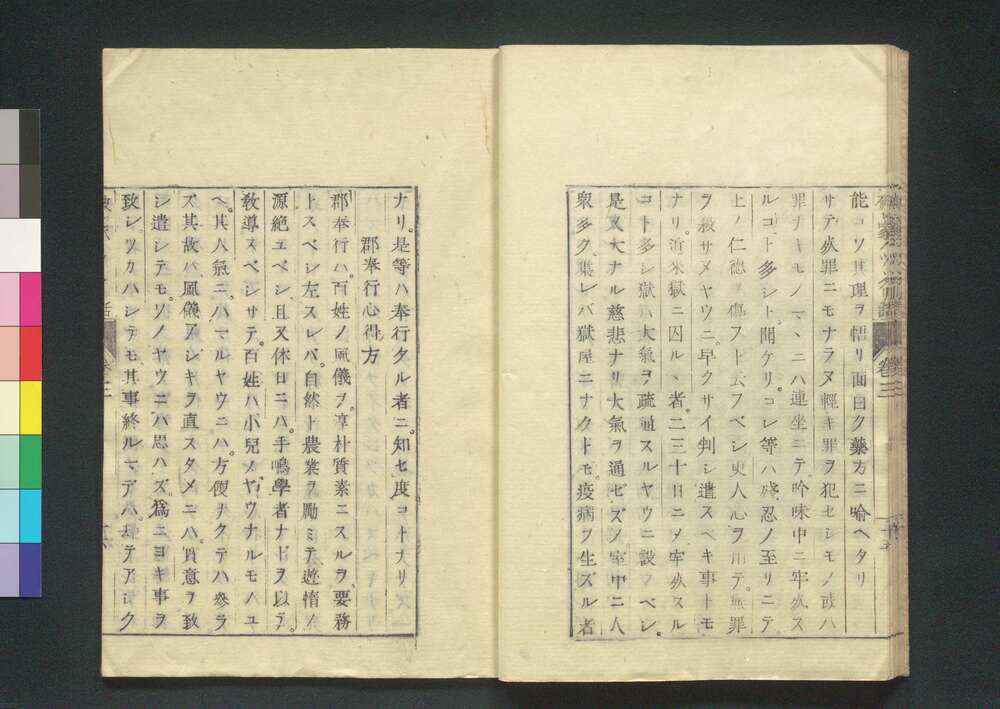 能コソ其理ヲ悟リ面白ク藥方ニ喩ヘタリ
サテ死罪ニモナラヌ輕キ罪ヲ犯セシモノ或ハ
罪ナキモノヽマヽニハ連坐ニテ吟味中ニ牢死ス
ルコト多シト聞ケリ。コレ等ハ殘忍ノ至リニテ
上ノ仁德ヲ傷フト云フベシ吏人心ヲ用テ。無罪
ヲ殺サヌヤウニ。早クサイ判シ遣スベキ事トモ
ナリ。近来獄ニ囚ルヽ者。二三十日ニメ牢死スル
コト多シ獄ハ大氣ヲ疏通スルヤウニ設クベシ。
是又大ナル慈悲ナリ大氣ヲ通ゼズメ室中ニ人
衆多ク。集レバ獄屋ニナクトモ。疫病ヲ生ズル者
ナリ。是等ハ奉行タル者ニ。知セ度コトナリ
郡奉行心得方
郡奉行ハ。百姓ノ風儀ヲ。淳朴質素ニスルヲ。要務
トスベシ左スレバ。自然ト農業ヲ勵ミテ。遊惰ノ
源絶ユベシ。且又休日ニハ。手嶋學者ナドヲ以テ。
敎導スベシサテ。百姓ハ小兒ノヤウナルモノユ
ヘ。其人氣ニ。ハマルヤウニハ。方便ナクテハ參ラ
ズ其故ハ。風儀アシキヲ直スタメニハ。質意ヲ致
シ遣シテモソノヤウニハ思ハズ。爲ニヨキ事ヲ
致シツカハシテモ。其事終ルマデハ。